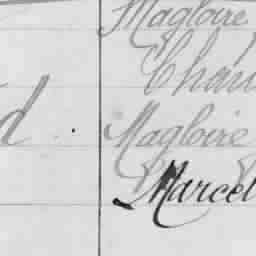 Magloire
d . Magloire
Marcel